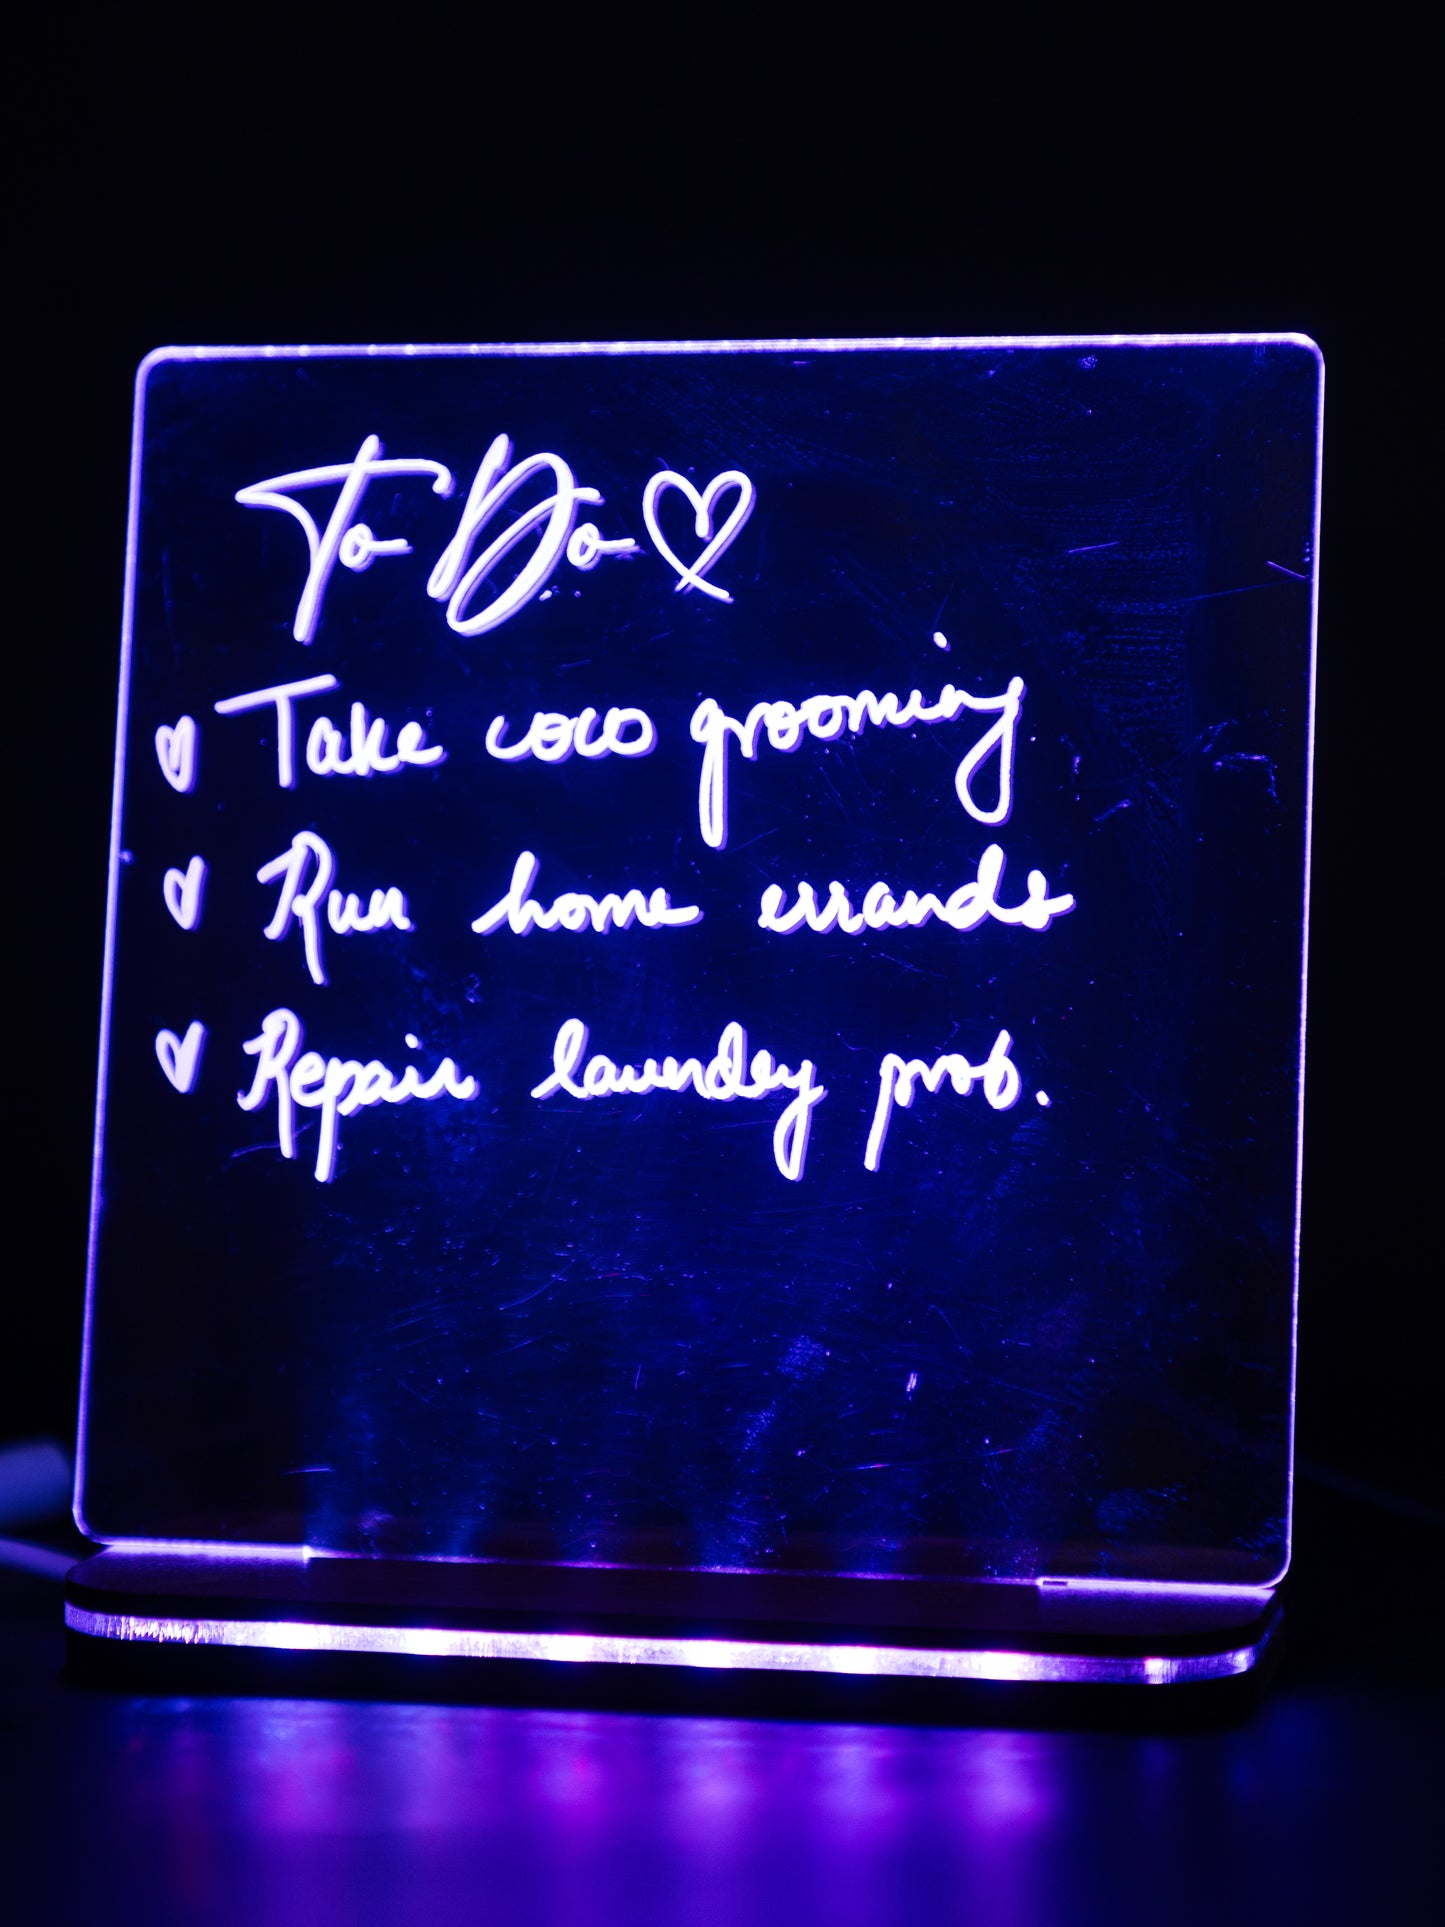 To Do ♡
♡ Take coco grooming
♡ Run home errands
♡ Repair laundry prob.